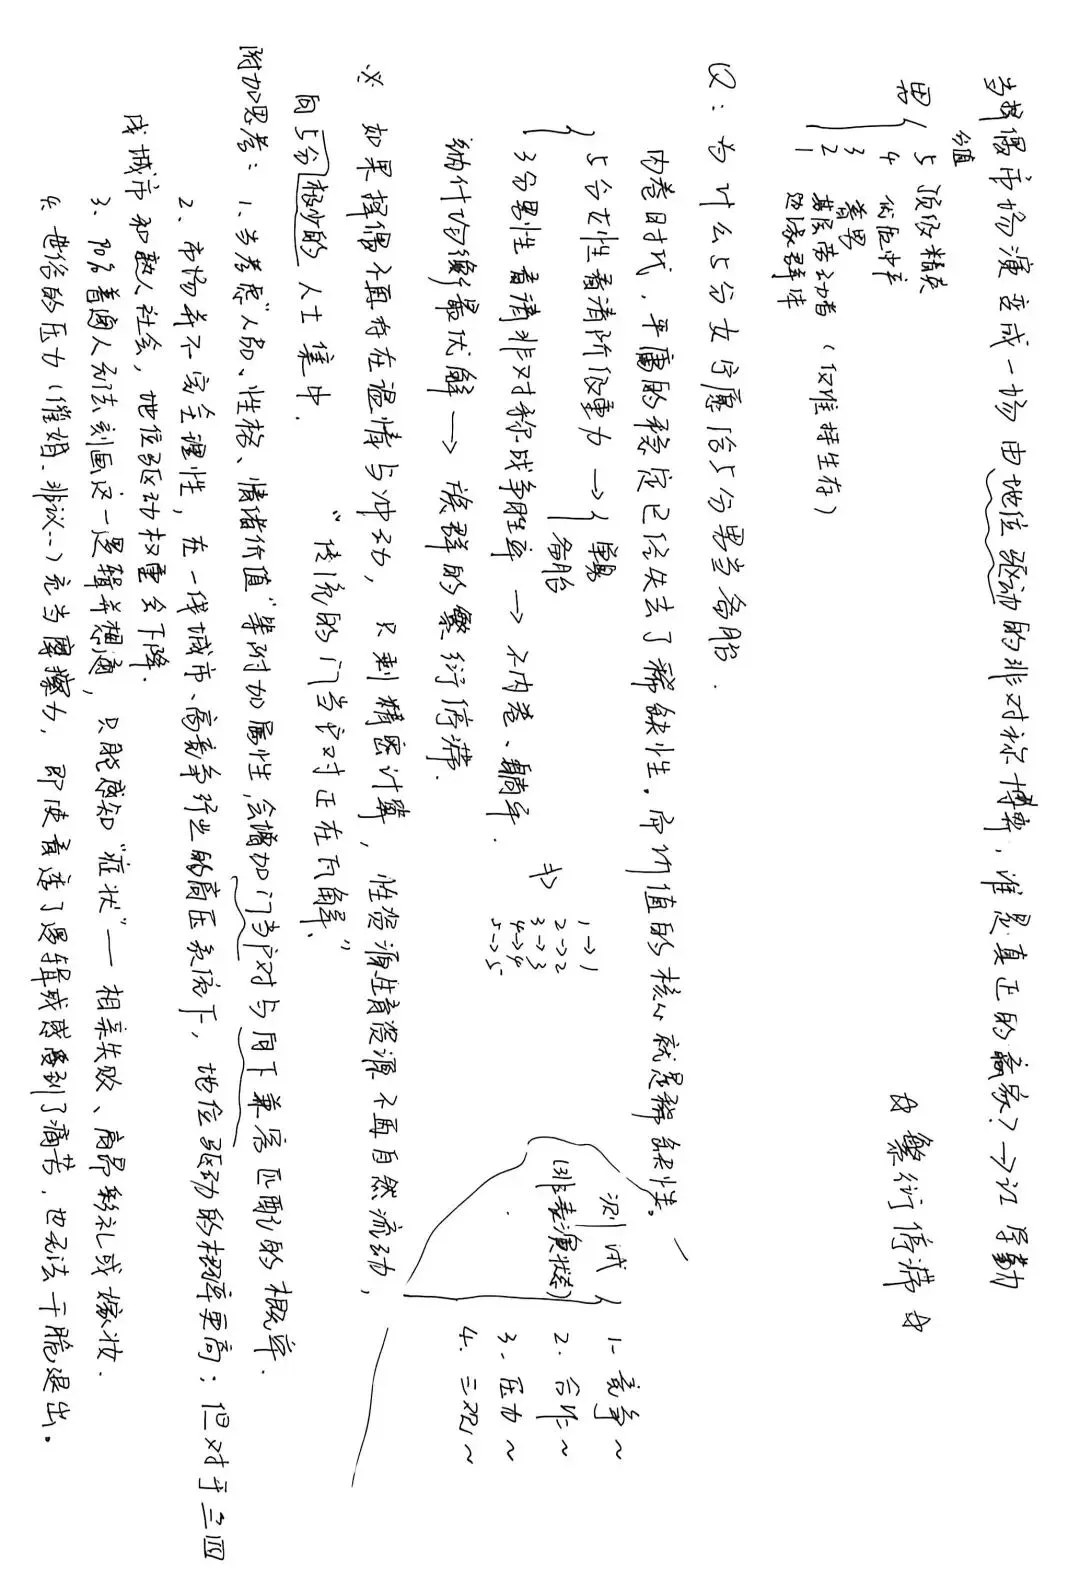 当择偶市场演变成一场由地位驱动的非对称博弈，谁是真正的赢家？→江学勤
分值
男 { 5 顶级精英
4 优质中产
3 普男
2 基层劳动者（仅维持生存）
1 边缘群体
☆ 繁衍停滞 ☆
Q：为什么5分女宁愿给5分男当备胎．
内卷时代，平庸的稳定已经失去了稀缺性。而价值的核心就是稀缺性。
{ 5分女性看清阶级重力 → { 单身
备胎
3分男性看清非对称战争胜率 → 不内卷、躺平．
纳什均衡最优解 → 族群的繁衍停滞．
1→1
2→2
3→3
4→4
5→5
测试
(非表演状态)
1. 竞争～
2. 合作～
3. 压力～
4. 三观～
※ 如果择偶不再存在温情与冲动，只剩精密计算，性资源生育资源不再自然流动，
向5分极少的人士集中．
“传统的门当户对正在瓦解．”
附加思考：1、当考虑“人品、性格、情绪价值”等附加属性，会增加门当户对与向下兼容匹配的概率．
2、市场并不完全理性，在一线城市、高竞争行业的高压系统下，地位驱动的概率更高；但对于三四
线城市和熟人社会，地位驱动权重会下降．
3、90%普通人无法刻画这一逻辑并想通，只能感知“症状”— 相亲失败、高昂彩礼或嫁妆．
4. 世俗的压力（催婚、非议…）充当摩擦力，即使看透了逻辑或感受到了痛苦，也无法干脆退出。